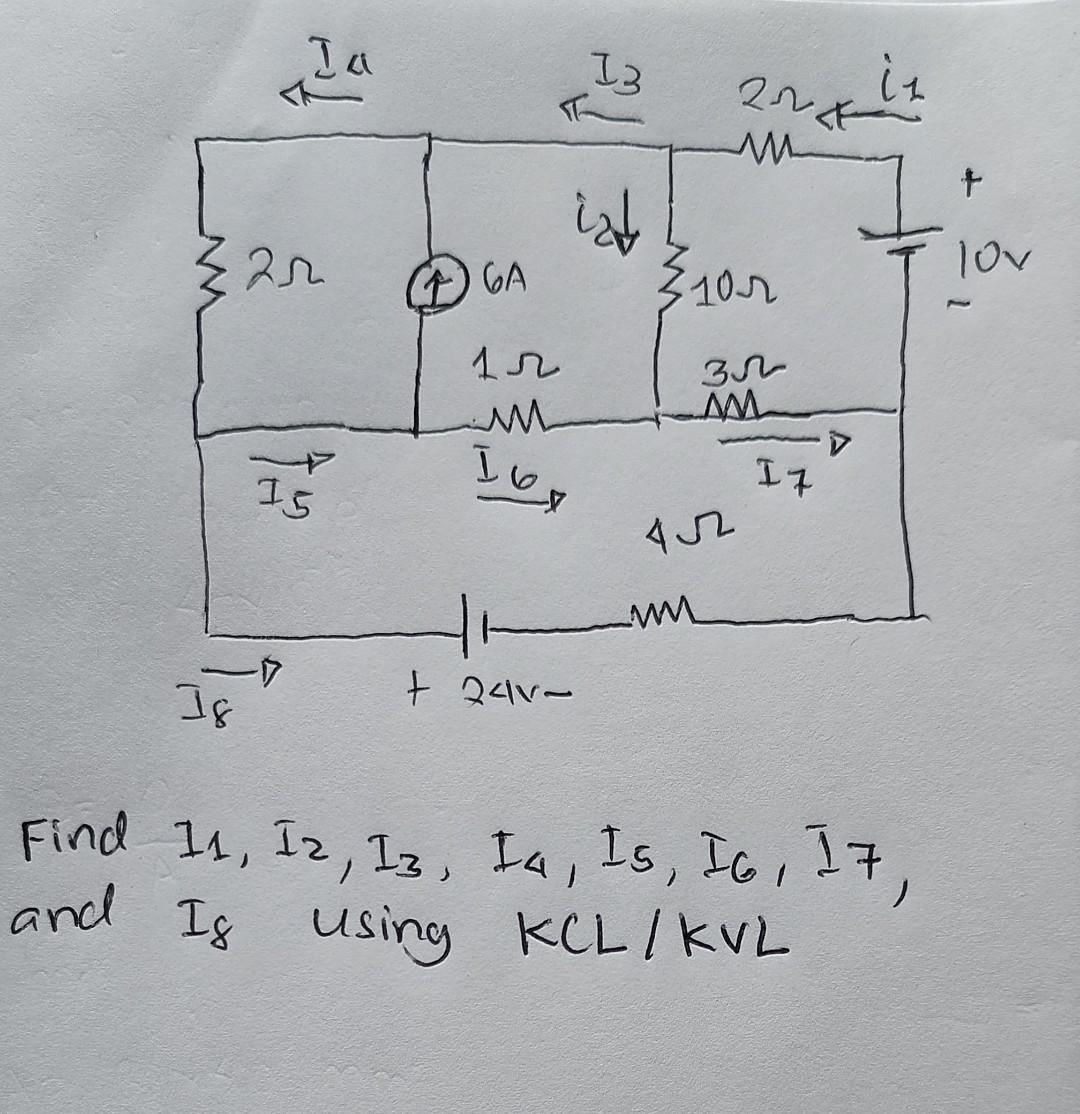 I4
I3
2Ω
i1
+
i2
2Ω
6A
10Ω
10v
-
1Ω
3Ω
I5
I6
I7
4Ω
I8
+ 24v-
Find I1, I2, I3, I4, I5, I6, I7,
and I8 using KCL/KVL